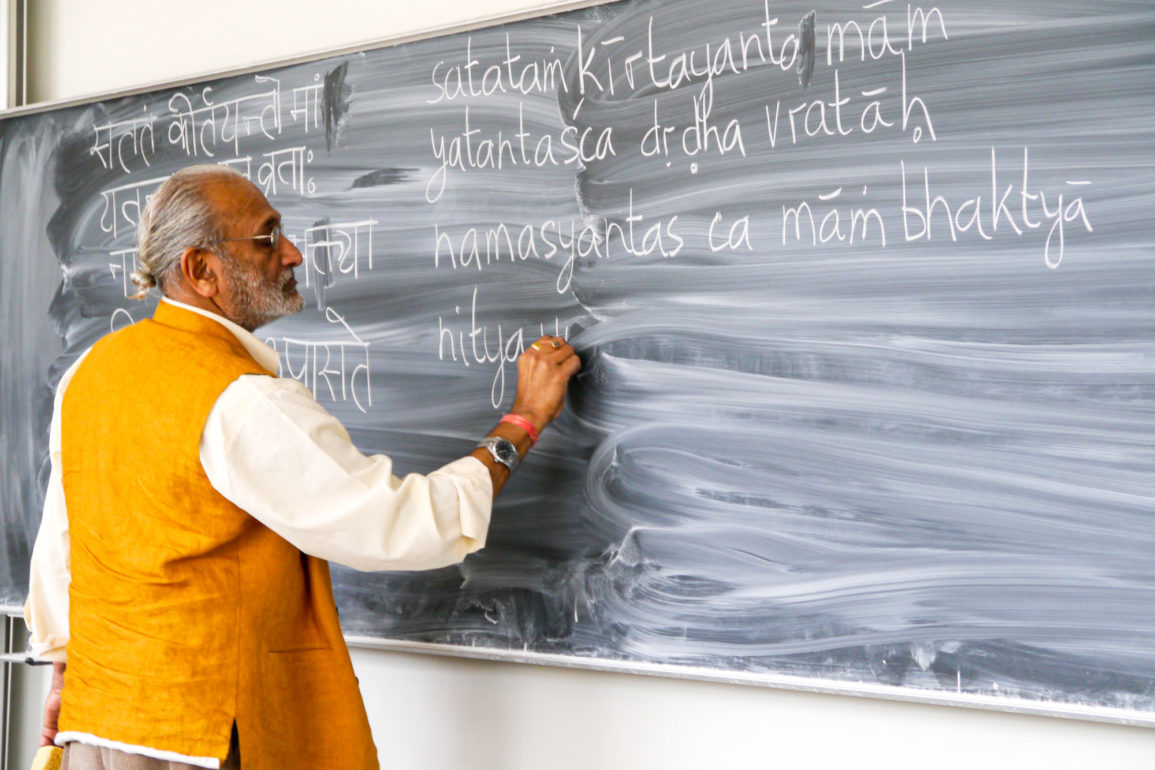 सततं कीर्तयन्तो मां
व्रताः
satataṁ kīrtayanto mām
yatantaśca dṛḍha vratāḥ
namasyantas ca māṁ bhaktyā
nitya